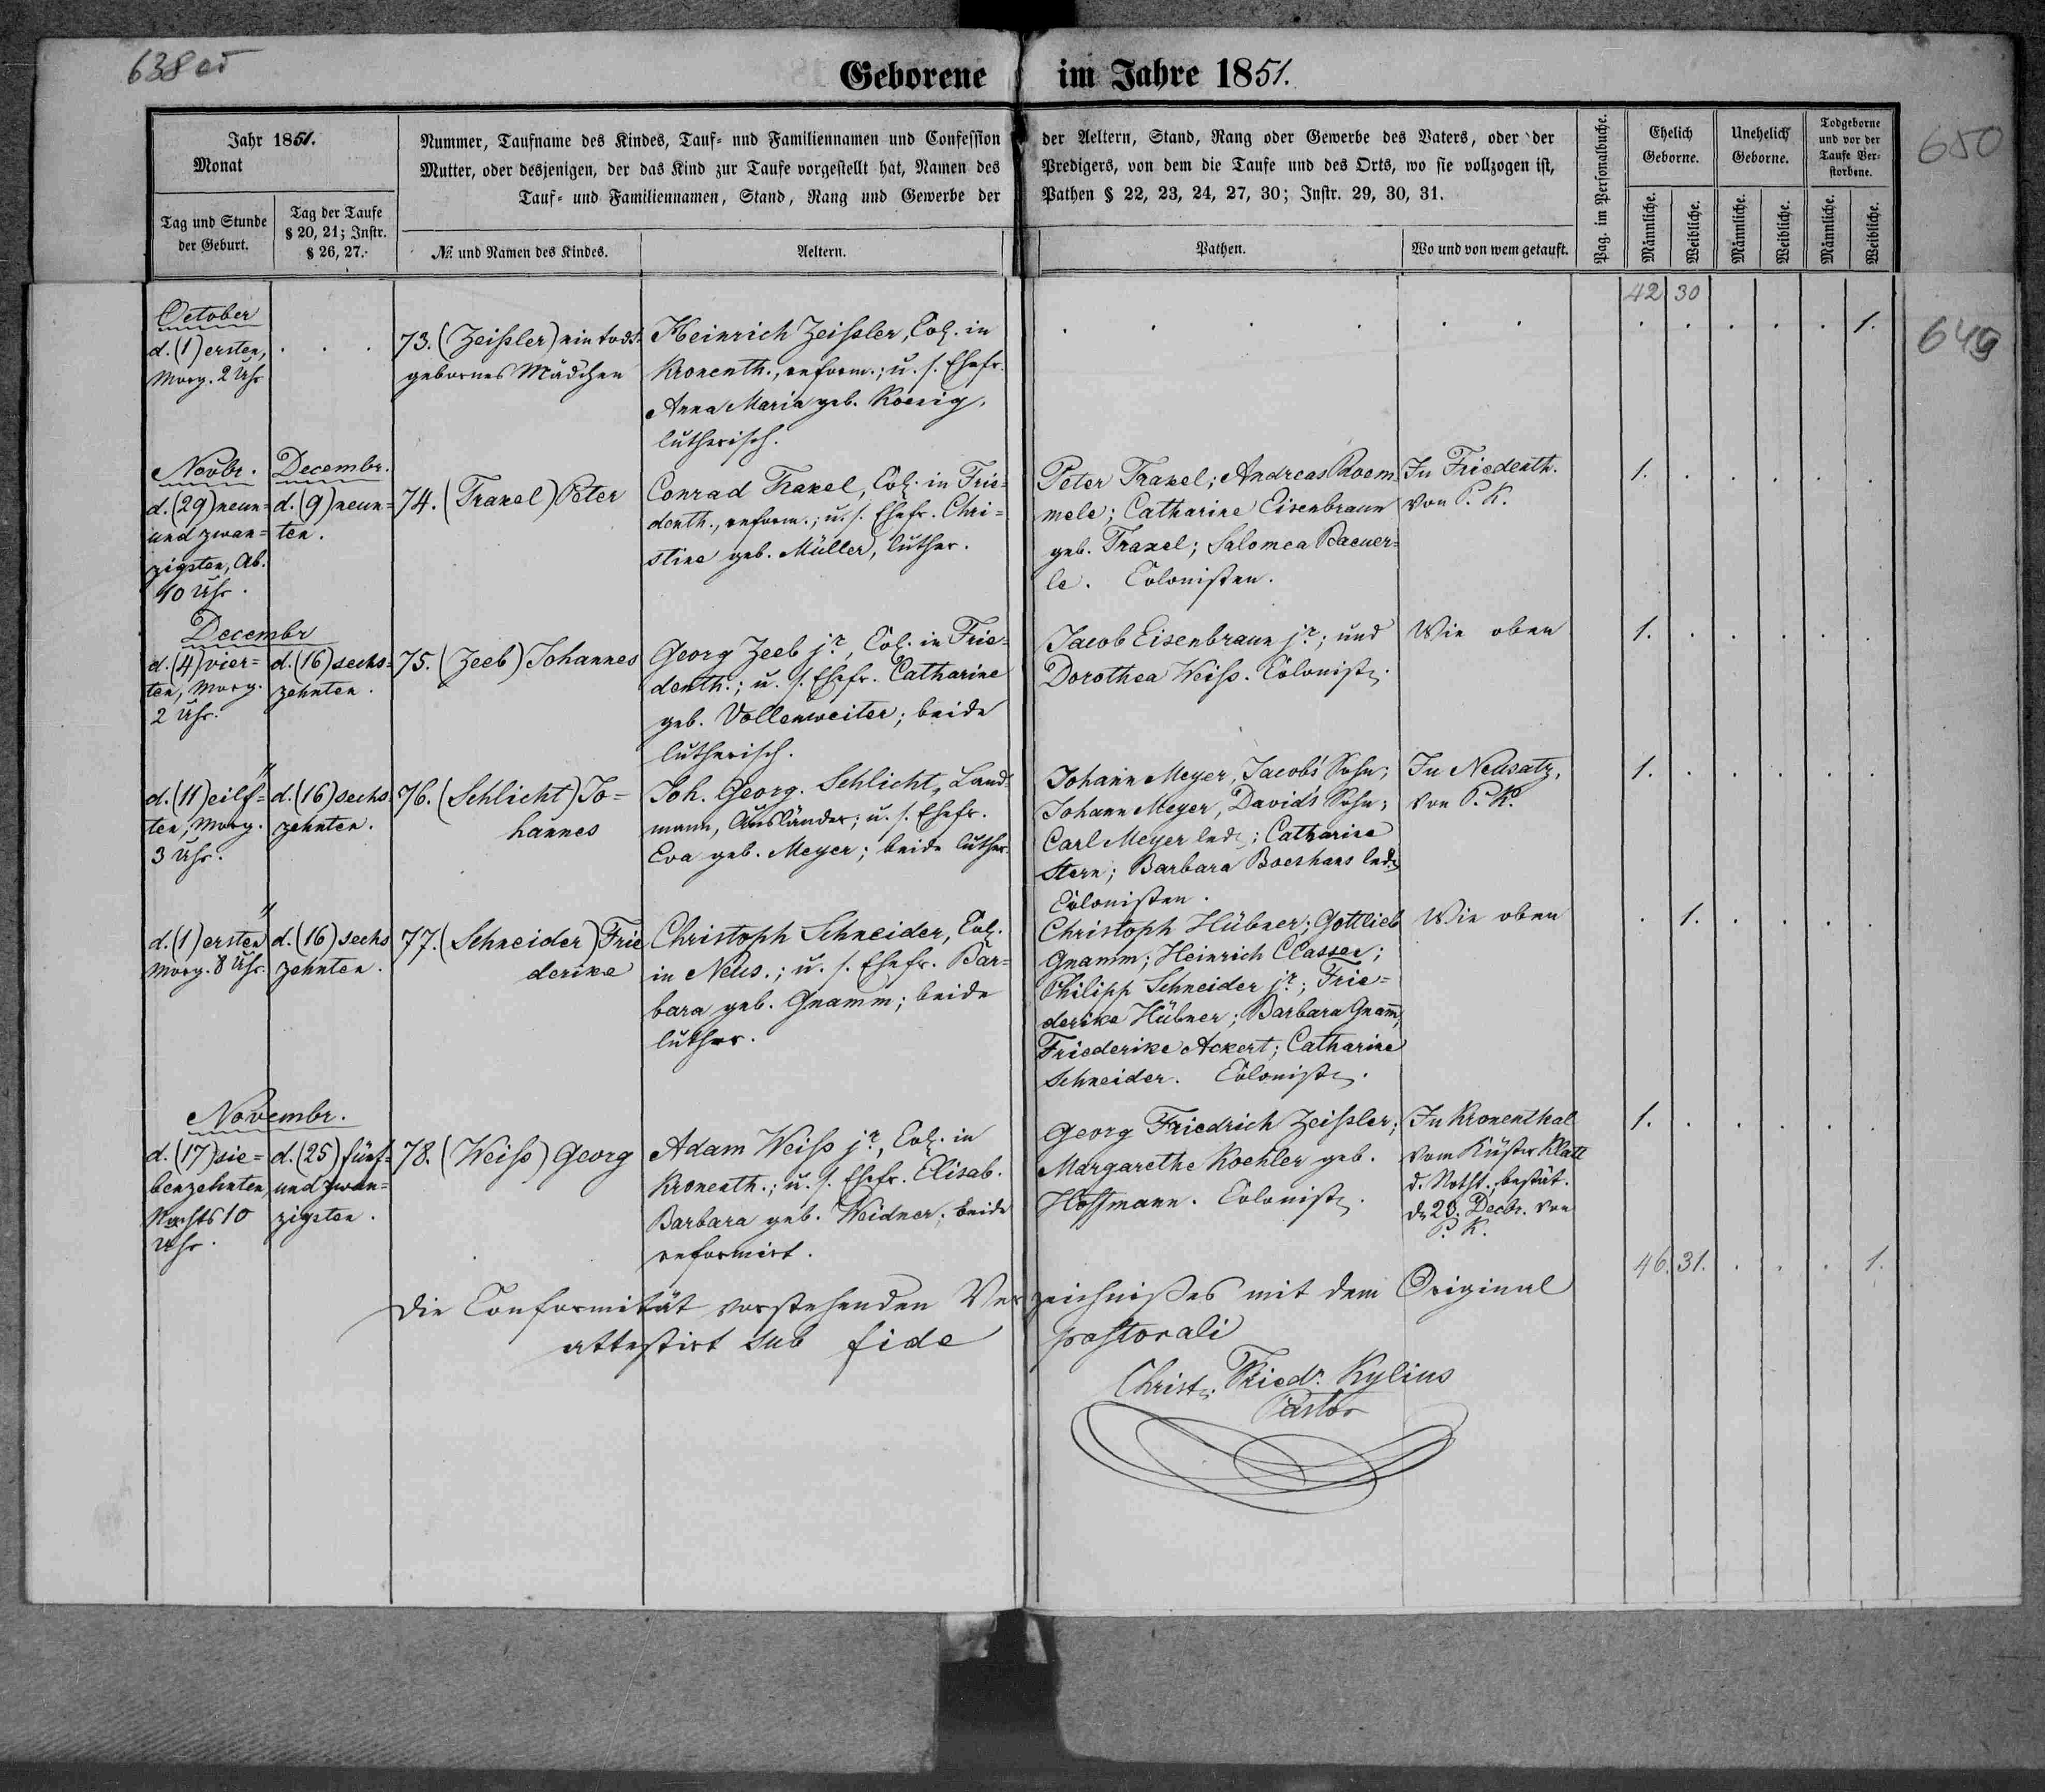 638 об
Geborene im Jahre 1851.
650
649
Jahr 1851.
Monat
Tag und Stunde
der Geburt.
Tag der Taufe
§ 20, 21; Instr.
§ 26, 27.
Nummer, Taufname des Kindes, Tauf- und Familiennamen und Confession der Aeltern, Stand, Rang oder Gewerbe des Vaters, oder der
Mutter, oder desjenigen, der das Kind zur Taufe vorgestellt hat, Namen des Predigers, von dem die Taufe und des Orts, wo sie vollzogen ist,
Tauf- und Familiennamen, Stand, Rang und Gewerbe der Pathen § 22, 23, 24, 27, 30; Instr. 29, 30, 31.
№ und Namen des Kindes.
Aeltern.
Pathen.
Wo und von wem getauft.
Pag. im Personalbuche.
Ehelich
Geborne.
Unehelich
Geborne.
Todgeborne
und vor der
Taufe Ver-
storbene.
Männliche.
Weibliche.
Männliche.
Weibliche.
Männliche.
Weibliche.
42 30
October
d. (1) ersten,
Morg. 2 Uhr
73. (Zeißler) ein todt-
gebornes Mädchen
Heinrich Zeißler, Col. in
Kronenth., reform.; u. s. Ehefr.
Anna Maria geb. Koenig,
lutherisch.
1.
Novbr.
d. (29) neun-
und zwan-
zigsten, Ab.
10 Uhr.
Decembr.
d. (9) neun-
ten.
74. (Traxel) Peter
Conrad Traxel, Col. in Frie-
denth., reform.; u. s. Ehefr. Chri-
stine geb. Müller, luther.
Peter Traxel; Andreas Roem-
mele; Catharine Eisenbraun
geb. Traxel; Salomea Baeuer-
le. Colonisten.
In Friedenth.
von P. K.
1.
Decembr
d. (4) vier-
ten, Morg.
2 Uhr.
d. (16) sechs-
zehnten.
75. (Zeeb) Johannes
Georg Zeeb jr., Col. in Frie-
denth.; u. s. Ehefr. Catharine
geb. Vollenweiter; beide
lutherisch.
Jacob Eisenbraun jr.; und
Dorothea Weiß. Colonist.
Wie oben
1.
"
d. (11) eilf-
ten, Morg.
3 Uhr.
d. (16) sechs
zehnten.
76. (Schlicht) Jo-
hannes
Joh. Georg. Schlicht, Land-
mann, Ausländer; u. s. Ehefr.
Eva geb. Meyer; beide luther.
Johann Meyer, Jacob's Sohn;
Johann Meyer, David's Sohn;
Carl Meyer led.; Catharine
Stern; Barbara Boeshans led.
Colonisten.
In Neusatz,
von P. K.
1.
"
d. (1) ersten
Morg. 8 Uhr.
d. (16) sechs
zehnten.
77. (Schneider) Frie
derike
Christoph Schneider, Col.
in Neus.; u. s. Ehefr. Bar-
bara geb. Gnamm; beide
luther.
Christoph Hübner; Gottlieb
Gnamm; Heinrich Classen;
Philipp Schneider jr.; Frie-
derike Hübner; Barbara Gnam̅;
Friederike Ackert; Catharine
Schneider. Colonist.
Wie oben
1.
Novembr.
d. (17) sie-
benzehnten
Nachts 10
Uhr.
d. (25) fünf-
und zwan-
zigsten.
78. (Weiß) Georg
Adam Weiß jr., Col. in
Kronenth.; u. s. Ehefr. Elisab.
Barbara geb. Weidner; beide
reformirt.
Georg Friedrich Zeißler;
Margarethe Koehler geb.
Hoffmann. Colonist.
In Kronenthal
vom Küster Klatt
d. Notht.; bestät.
d. 23. Decbr. von
P. K.
1.
46. 31. 1.
Die Conformität vorstehenden Verzeichnißes mit dem Original
attestirt sub fide pastorali
Christ. Friedr. Kylius
Pastor